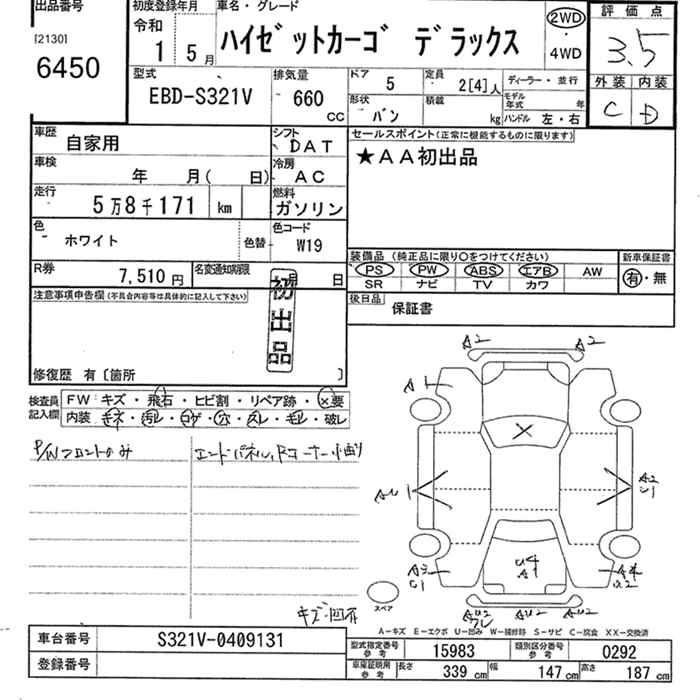 出品番号
[2130]
6450
初度登録年月
令和
1 5月
車名・グレード
ハイゼットカーゴ デラックス
2WD
・
4WD
評価点
3.5
外装 内装
C D
型式
EBD-S321V
排気量
660
CC
ドア 5
定員 2[4]人
ディーラー・並行
形状 バン
積載 kg
モデル年式 年
ハンドル 左・右
車歴 自家用
シフト DAT
車検 年 月( 日)
冷房 AC
走行 5万8千171 km
燃料 ガソリン
色 ホワイト
色替
色コード W19
R券 7,510円
名変通知期限 月 日
セールスポイント(正常に機能するものに限ります)
★AA初出品
装備品 (純正品に限り〇をつけてください)
新車保証書
PS PW ABS エアB AW
SR ナビ TV カワ
有・無
後日品 保証書
注意事項申告欄(不具合内容等は具体的に記入して下さい)
初出品
修復歴 有〔箇所 〕
検査員記入欄
FW キズ・飛石・ヒビ割・リペア跡・×要
内装 ・ヨゴレ・コゲ・穴・スレ・・破レ
P/Wフロントのみ
エンドパネル,Rコーナー小曲り
キズ・凹有
A2 A2
A1
X
A2
U1
U4
A1
A3
C1
スペア
A-キズ E-エクボ U-凹み W-補修跡 S-サビ C-腐食 XX-交換済
車台番号 S321V-0409131
登録番号
型式指定番号 参考 15983
類別区分番号 参考 0292
車庫証明用 参考 長さ 339cm 幅 147cm 高さ 187cm